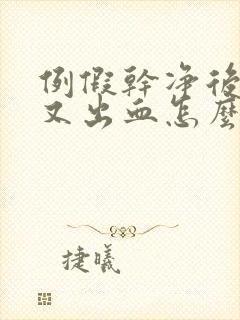 例假幹净後
又出血怎麼
捷曦